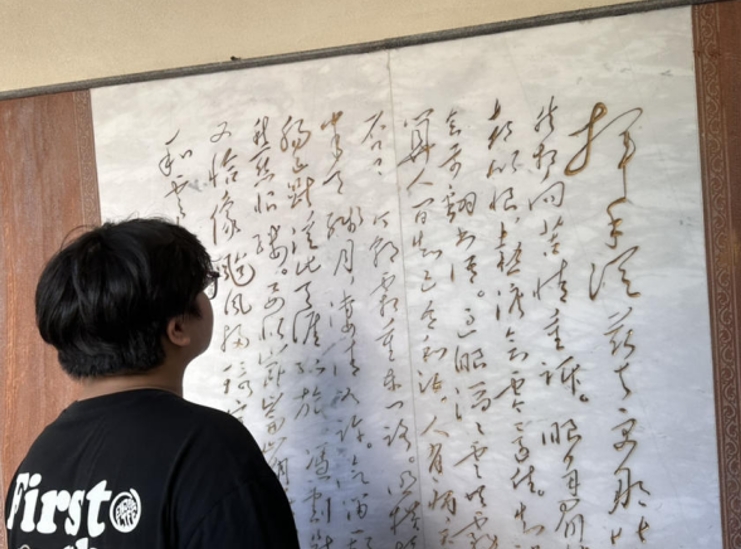 挥手从兹去更那堪
然相向苦情重诉。眼角眉
都似恨,热泪欲零还住。知
会前翻书语。过眼滔滔云共雾
算人间知己吾和汝。人有病
知否? 今朝霜重东门路。照横
半天残月,凄清如许。汽笛一
肠已断,从此天涯孤旅。凭割断
愁丝恨缕。要似崑崙崩
又恰像颱风扫寰
和云
First